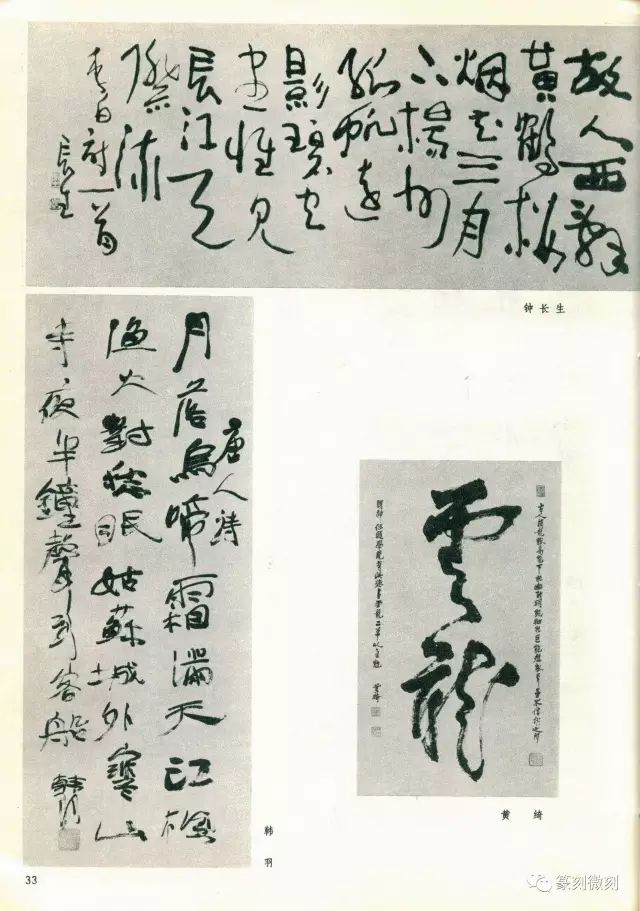 故人西辭
黃鶴楼
烟花三月
下揚州
孤帆遠
影碧空
尽惟见
長江天
際流
李白诗一首
長生
钟长生
唐人詩
月落烏啼霜滿天江楓
漁火對愁眠姑蘇城外寒山
寺夜半鐘聲到客船 韓羽
韩羽
云龍
黄绮
黄绮
33
篆刻微刻